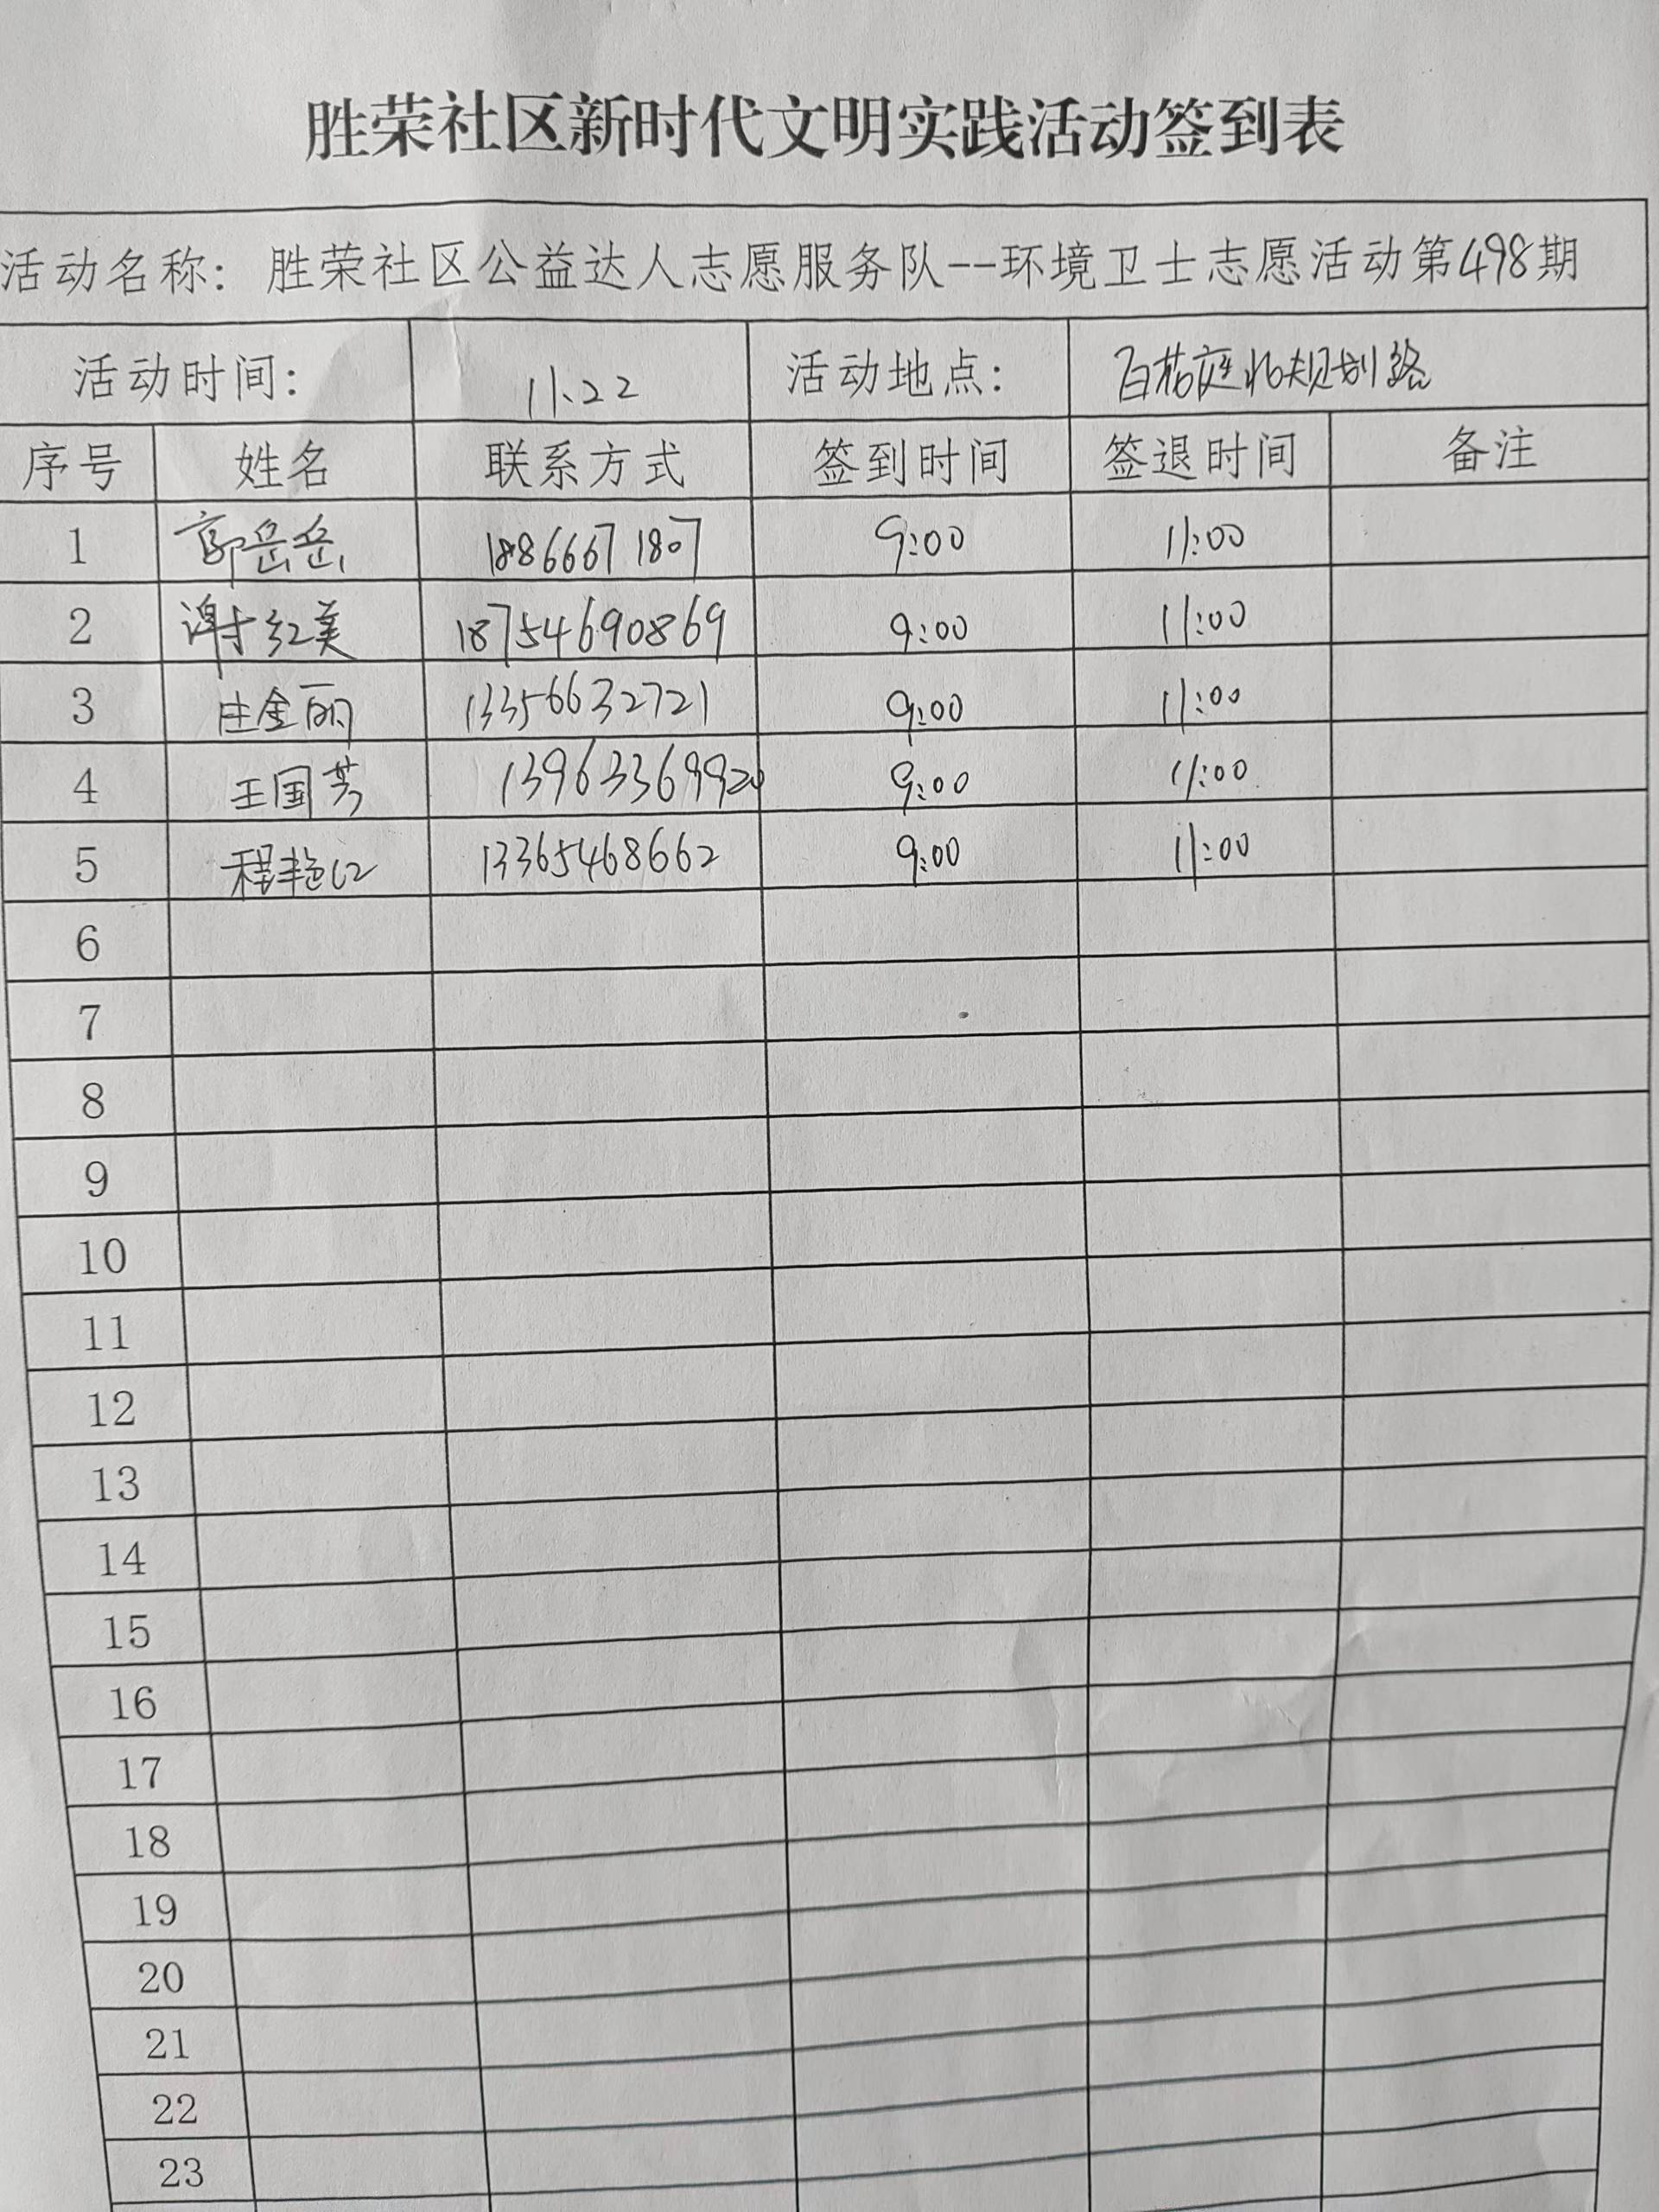 胜荣社区新时代文明实践活动签到表
活动名称: 胜荣社区公益达人志愿服务队--环境卫士志愿活动第498期
活动时间: 11.22 活动地点: 百花庭北规划路
序号 姓名 联系方式 签到时间 签退时间 备注
1 郭岳岳 18866671807 9:00 11:00
2 谢红美 18754690869 9:00 11:00
3 庄金丽 13356632721 9:00 11:00
4 王国芳 13963369920 9:00 11:00
5 程艳红 13365468662 9:00 11:00
6
7
8
9
10
11
12
13
14
15
16
17
18
19
20
21
22
23